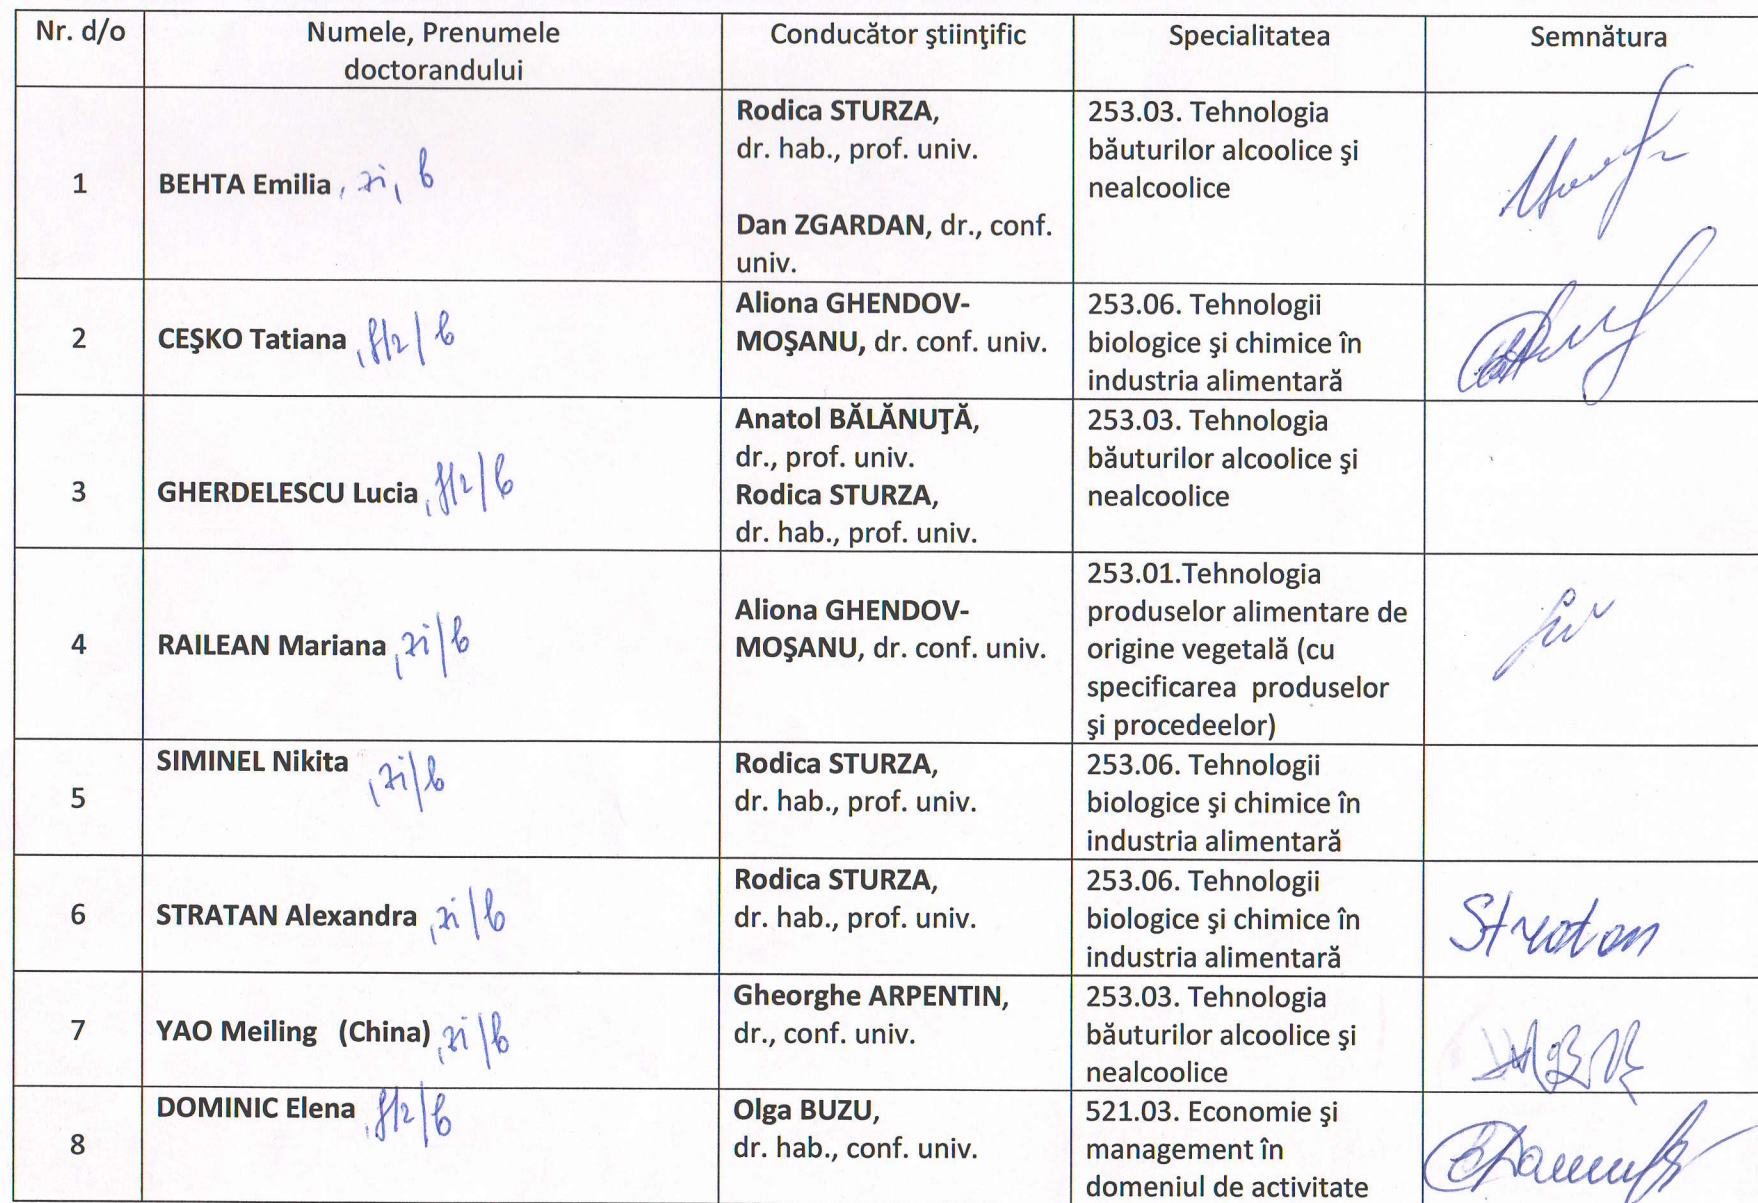 Nr. d/o
Numele, Prenumele
doctorandului
Conducător ştiinţific
Specialitatea
Semnătura
1
BEHTA Emilia , zi, b
Rodica STURZA,
dr. hab., prof. univ.
Dan ZGARDAN, dr., conf.
univ.
253.03. Tehnologia
băuturilor alcoolice şi
nealcoolice
2
CEŞKO Tatiana , f/z / b
Aliona GHENDOV-
MOŞANU, dr. conf. univ.
253.06. Tehnologii
biologice şi chimice în
industria alimentară
3
GHERDELESCU Lucia , f/z / b
Anatol BĂLĂNUŢĂ,
dr., prof. univ.
Rodica STURZA,
dr. hab., prof. univ.
253.03. Tehnologia
băuturilor alcoolice şi
nealcoolice
4
RAILEAN Mariana , zi / b
Aliona GHENDOV-
MOŞANU, dr. conf. univ.
253.01.Tehnologia
produselor alimentare de
origine vegetală (cu
specificarea produselor
şi procedeelor)
5
SIMINEL Nikita , zi / b
Rodica STURZA,
dr. hab., prof. univ.
253.06. Tehnologii
biologice şi chimice în
industria alimentară
6
STRATAN Alexandra , zi / b
Rodica STURZA,
dr. hab., prof. univ.
253.06. Tehnologii
biologice şi chimice în
industria alimentară
Stratan
7
YAO Meiling (China) , zi / b
Gheorghe ARPENTIN,
dr., conf. univ.
253.03. Tehnologia
băuturilor alcoolice şi
nealcoolice
8
DOMINIC Elena , f/z / b
Olga BUZU,
dr. hab., conf. univ.
521.03. Economie şi
management în
domeniul de activitate